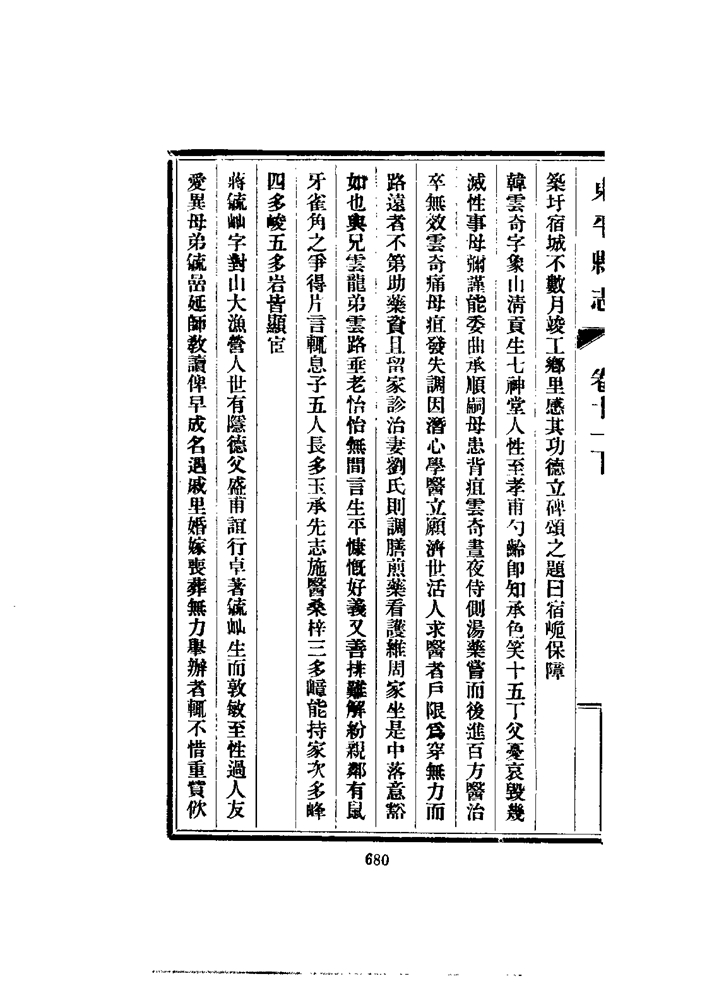 東平縣志 卷十一下
築圩宿城不數月竣工鄉里感其功德立碑頌之題曰宿城保障
韓雲奇字象山清貢生七神堂人性至孝甫勺齡即知承色笑十五丁父憂哀毀幾
滅性事母彌謹能委曲承順嗣母患背疽雲奇晝夜侍側湯藥嘗而後進百方醫治
卒無效雲奇痛母疽發失調因潛心學醫立願濟世活人求醫者戶限為穿無力而
路遠者不第助藥資且留家診治妻劉氏則調膳煎藥看護維周家坐是中落意豁
如也與兄雲龍弟雲路垂老怡怡無間言生平慷慨好義又善排難解紛親鄰有鼠
牙雀角之爭得片言輒息子五人長多玉承先志施醫桑梓三多嶂能持家次多峰
四多峻五多岩皆顯宦
蔣毓岫字對山大漁營人世有隱德父盛甫誼行卓著毓岫生而敦敏至性過人友
愛異母弟毓嵒延師教讀俾早成名遇戚里婚嫁喪葬無力舉辦者輒不惜重貲佽
680